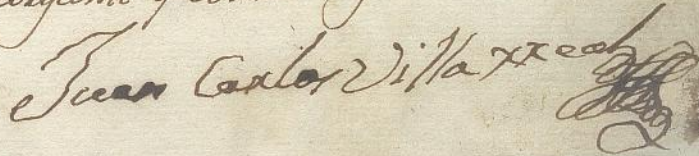 Juan Carlos Villarreal